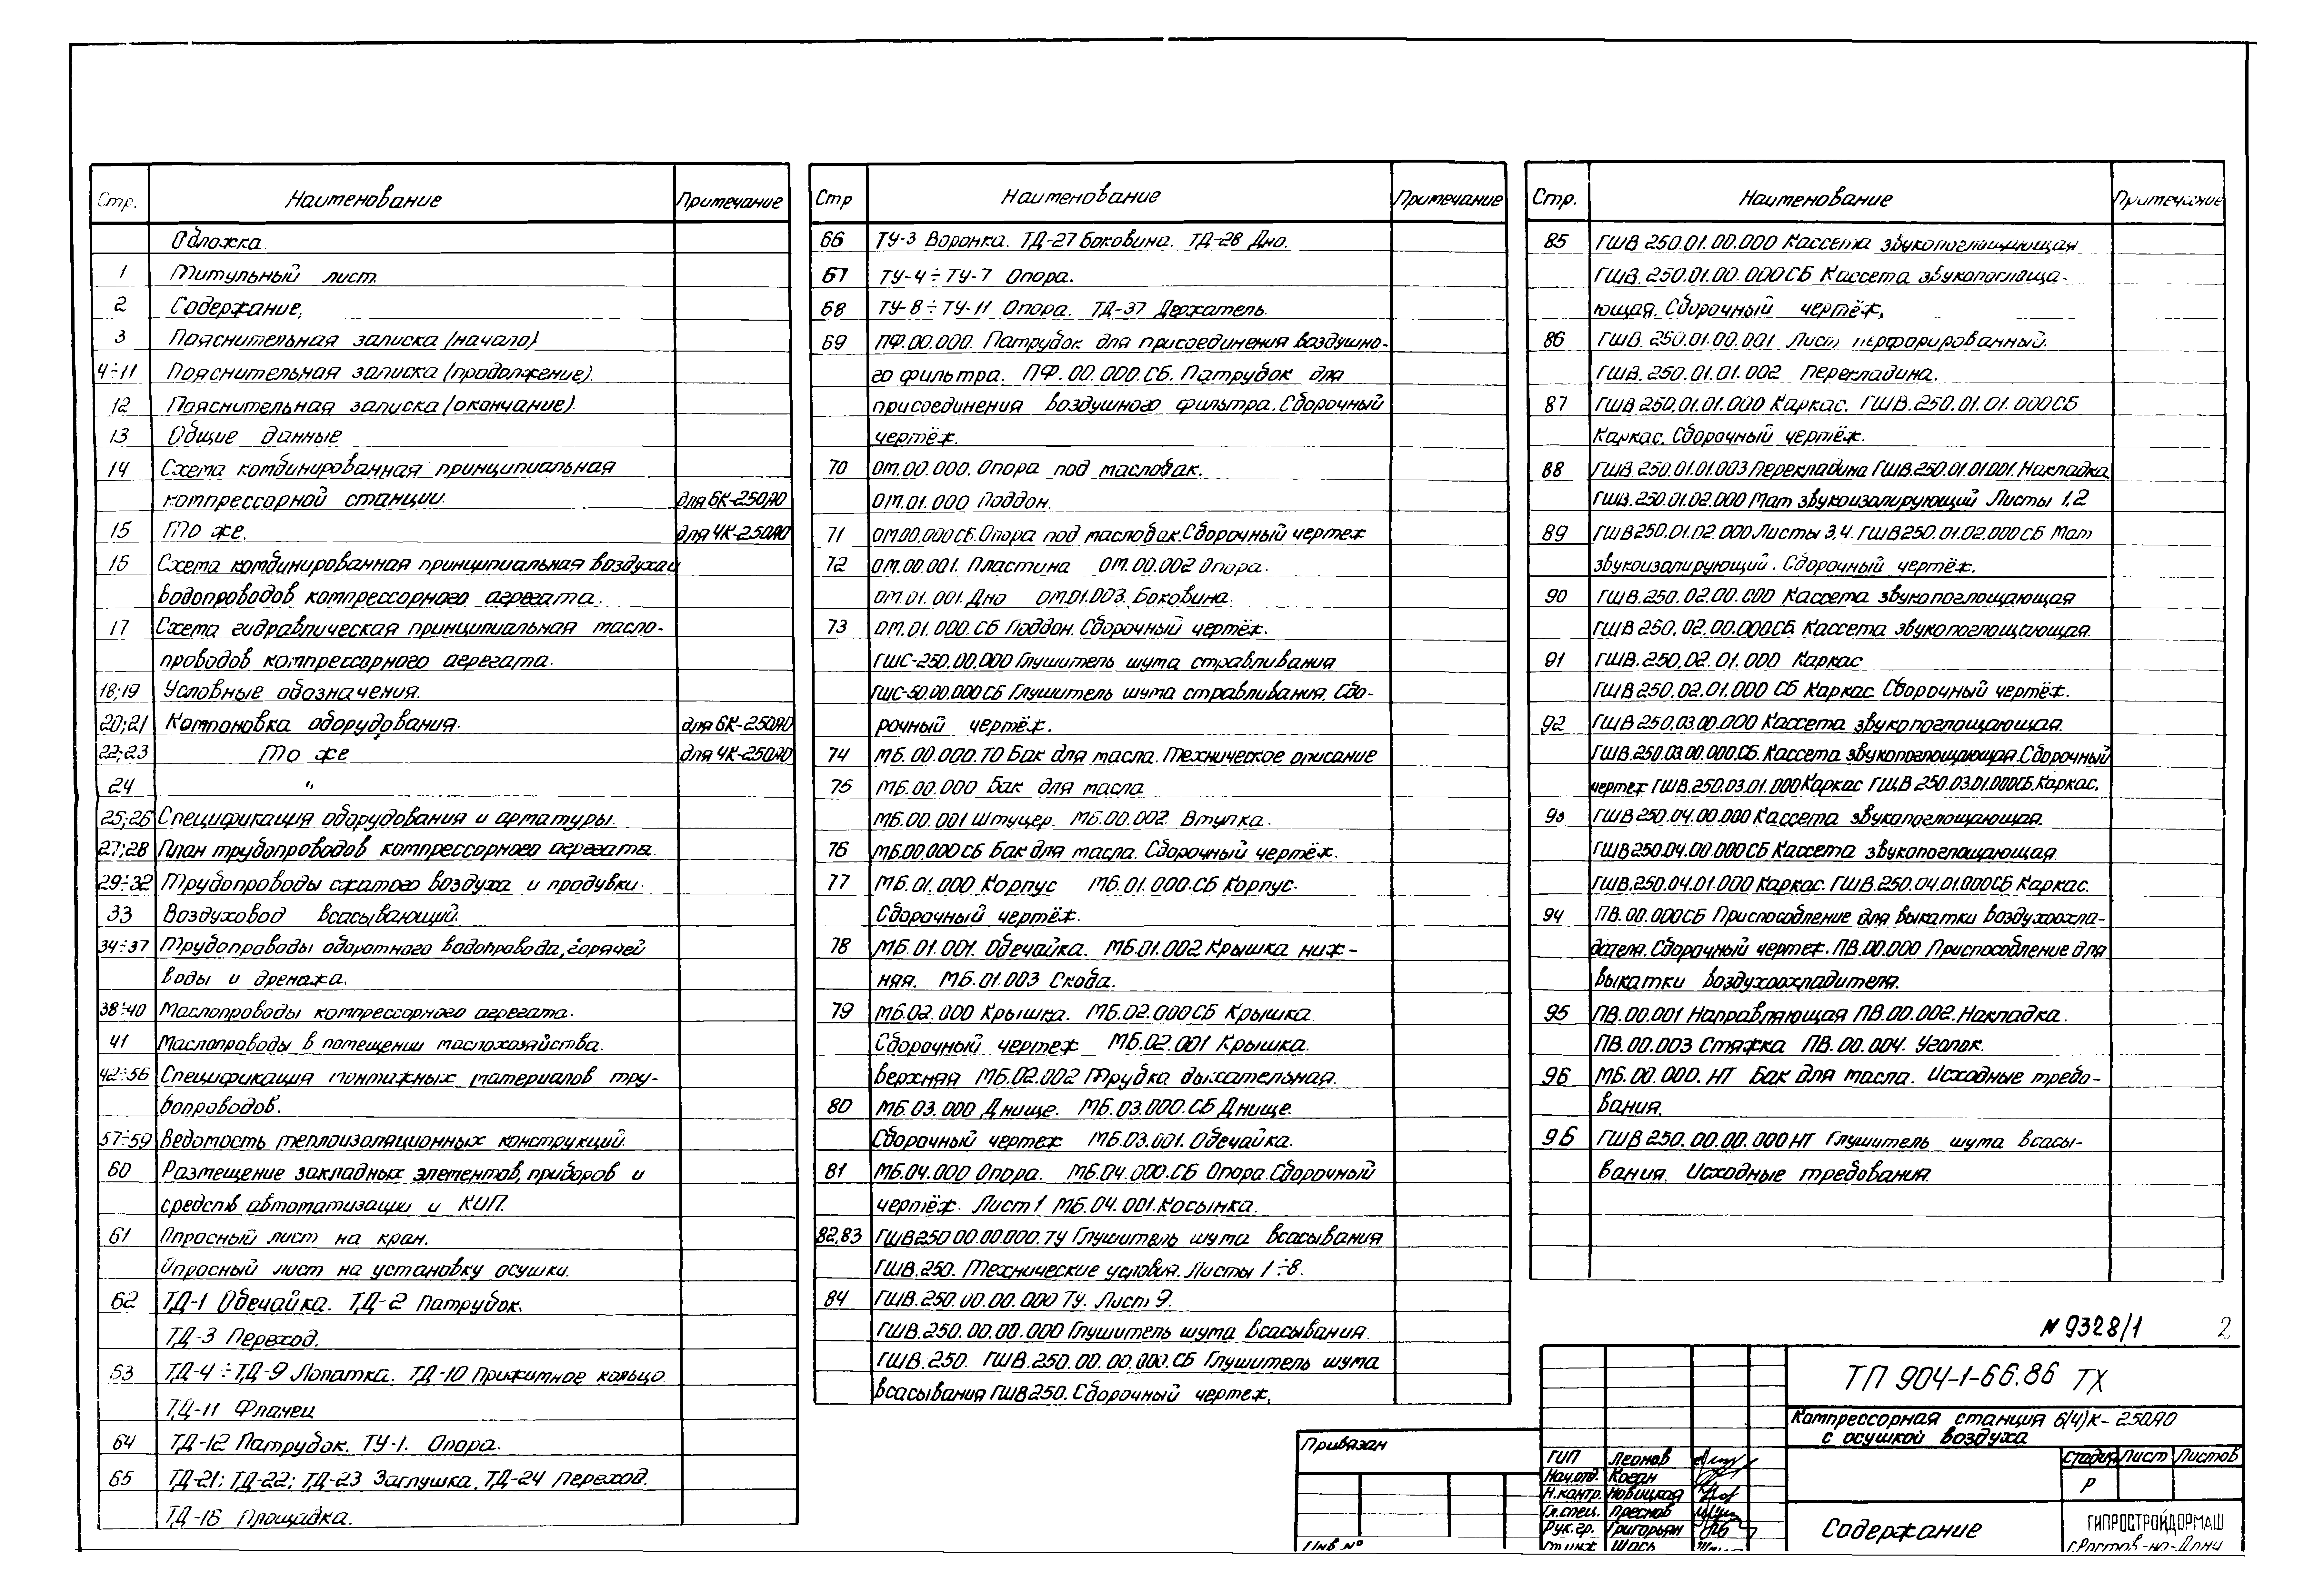 Стр. Наименование Примечание
Обложка.
1 Титульный лист.
2 Содержание.
3 Пояснительная записка (начало)
4÷11 Пояснительная записка (продолжение).
12 Пояснительная записка (окончание).
13 Общие данные
14 Схема комбинированная принципиальная
компрессорной станции. для 6К-250А0
15 То же. для 4К-250А0
16 Схема комбинированная принципиальная воздуха и
водопроводов компрессорного агрегата.
17 Схема гидравлическая принципиальная масло-
проводов компрессорного агрегата.
18;19 Условные обозначения.
20;21 Компоновка оборудования. для 6К-250А0
22;23 То же для 4К-250А0
24 "
25;26 Спецификация оборудования и арматуры.
27;28 План трубопроводов компрессорного агрегата.
29÷32 Трубопроводы сжатого воздуха и продувки.
33 Воздуховод всасывающий.
34÷37 Трубопроводы оборотного водопровода, горячей
воды и дренажа.
38÷40 Маслопроводы компрессорного агрегата.
41 Маслопроводы в помещении маслохозяйства.
42÷56 Спецификация монтажных материалов тру-
бопроводов.
57÷59 Ведомость теплоизоляционных конструкций.
60 Размещение закладных элементов, приборов и
средств автоматизации и КИП.
61 Опросный лист на кран.
Опросный лист на установку осушки.
62 ТД-1 Обечайка. ТД-2 Патрубок.
ТД-3 Переход.
63 ТД-4÷ТД-9 Лопатка. ТД-10 Прижимное кольцо.
ТД-11 Фланец
64 ТД-12 Патрубок. ТУ-1. Опора.
65 ТД-21; ТД-22; ТД-23 Заглушка, ТД-24 Переход.
ТД-16 Площадка.
Стр Наименование Примечание
66 ТУ-3 Воронка. ТД-27 Боковина. ТД-28 Дно.
67 ТУ-4÷ТУ-7 Опора.
68 ТУ-8÷ТУ-11 Опора. ТД-37 Держатель.
69 ПФ.00.000. Патрубок для присоединения воздушно-
го фильтра. ПФ.00.000.СБ. Патрубок для
присоединения воздушного фильтра. Сборочный
чертёж.
70 ОМ.00.000. Опора под маслобак.
ОМ.01.000 Поддон.
71 ОМ.00.000СБ. Опора под маслобак. Сборочный чертеж
72 ОМ.00.001. Пластина ОМ.00.002 Опора.
ОМ.01.001. Дно ОМ.01.003. Боковина.
73 ОМ.01.000.СБ Поддон. Сборочный чертёж.
ГШС-250.00.000 Глушитель шума стравливания
ГШС-50.00.000СБ Глушитель шума стравливания. Сбо-
рочный чертёж.
74 МБ.00.000.ТО Бак для масла. Техническое описание
75 МБ.00.000 Бак для масла
МБ.00.001 Штуцер. МБ.00.002. Втулка.
76 МБ.00.000СБ Бак для масла. Сборочный чертёж.
77 МБ.01.000 Корпус МБ.01.000.СБ Корпус.
Сборочный чертёж.
78 МБ.01.001. Обечайка. МБ.01.002 Крышка ниж-
няя. МБ.01.003 Скоба.
79 МБ.02.000 Крышка. МБ.02.000СБ Крышка.
Сборочный чертеж МБ.02.001 Крышка.
верхняя МБ.02.002 Трубка дыхательная.
80 МБ.03.000 Днище. МБ.03.000.СБ Днище.
Сборочный чертеж МБ.03.001. Обечайка.
81 МБ.04.000 Опора. МБ.04.000.СБ Опора. Сборочный
чертёж. Лист 1 МБ.04.001.Косынка.
82,83 ГШВ250 00.00.000.ТУ Глушитель шума всасывания
ГШВ.250. Технические условия. Листы 1÷8.
84 ГШВ.250.00.00.000 ТУ. Лист 9.
ГШВ.250.00.00.000 Глушитель шума всасывания.
ГШВ.250. ГШВ.250.00.00.000.СБ Глушитель шума
всасывания ГШВ250. Сборочный чертеж.
Стр. Наименование Примечание
85 ГШВ 250.01.00.000 Кассета звукопоглощающая
ГШВ.250.01.00.000СБ Кассета звукопоглоща-
ющая. Сборочный чертёж.
86 ГШВ.250.01.00.001 Лист перфорированный.
ГШВ.250.01.01.002 Перекладина.
87 ГШВ 250.01.01.000 Каркас. ГШВ.250.01.01.000СБ
Каркас. Сборочный чертёж.
88 ГШВ.250.01.01.003 Перекладина ГШВ.250.01.01.001. Накладка
ГШВ.250.01.02.000 Мат звукоизолирующий Листы 1,2
89 ГШВ250.01.02.000 Листы 3,4. ГШВ250.01.02.000СБ Мат
звукоизолирующий. Сборочный чертёж.
90 ГШВ.250.02.00.000 Кассета звукопоглощающая
ГШВ 250.02.00.000СБ Кассета звукопоглощающая.
91 ГШВ.250.02.01.000 Каркас
ГШВ 250.02.01.000 СБ Каркас. Сборочный чертёж.
92 ГШВ 250.03.00.000 Кассета звукопоглощающая.
ГШВ.250.03.00.000.СБ. Кассета звукопоглощающая. Сборочный
чертеж ГШВ.250.03.01.000 Каркас ГШВ 250.03.01.000СБ. Каркас.
93 ГШВ 250.04.00.000 Кассета звукопоглощающая.
ГШВ250.04.00.000СБ Кассета звукопоглощающая.
ГШВ.250.04.01.000 Каркас. ГШВ.250.04.01.000СБ Каркас.
94 ПВ.00.000СБ Приспособление для выкатки воздухоохла-
дителя. Сборочный чертеж. ПВ.00.000 Приспособление для
выкатки воздухоохладителя.
95 ПВ.00.001 Направляющая ПВ.00.002. Накладка.
ПВ.00.003 Стяжка ПВ.00.004. Уголок.
96 МБ.00.000.НТ Бак для масла. Исходные требо-
вания.
96 ГШВ 250.00.00.000НТ Глушитель шума всасы-
вания. Исходные требования.
N 9328/1 2
ТП 904-1-66.86 ТХ
Компрессорная станция 6(4)К-250А0
с осушкой воздуха
Привязан
Инв. №
ГИП Леонов
Нач.отд. Коган
Н.контр. Новицкая
Гл.спец. Преснов
Рук.гр. Григорьян
Ст.инж Шась
Стадия Лист Листов
Р
Содержание
ГИПРОСТРОЙДОРМАШ
г.Ростов-на-Дону